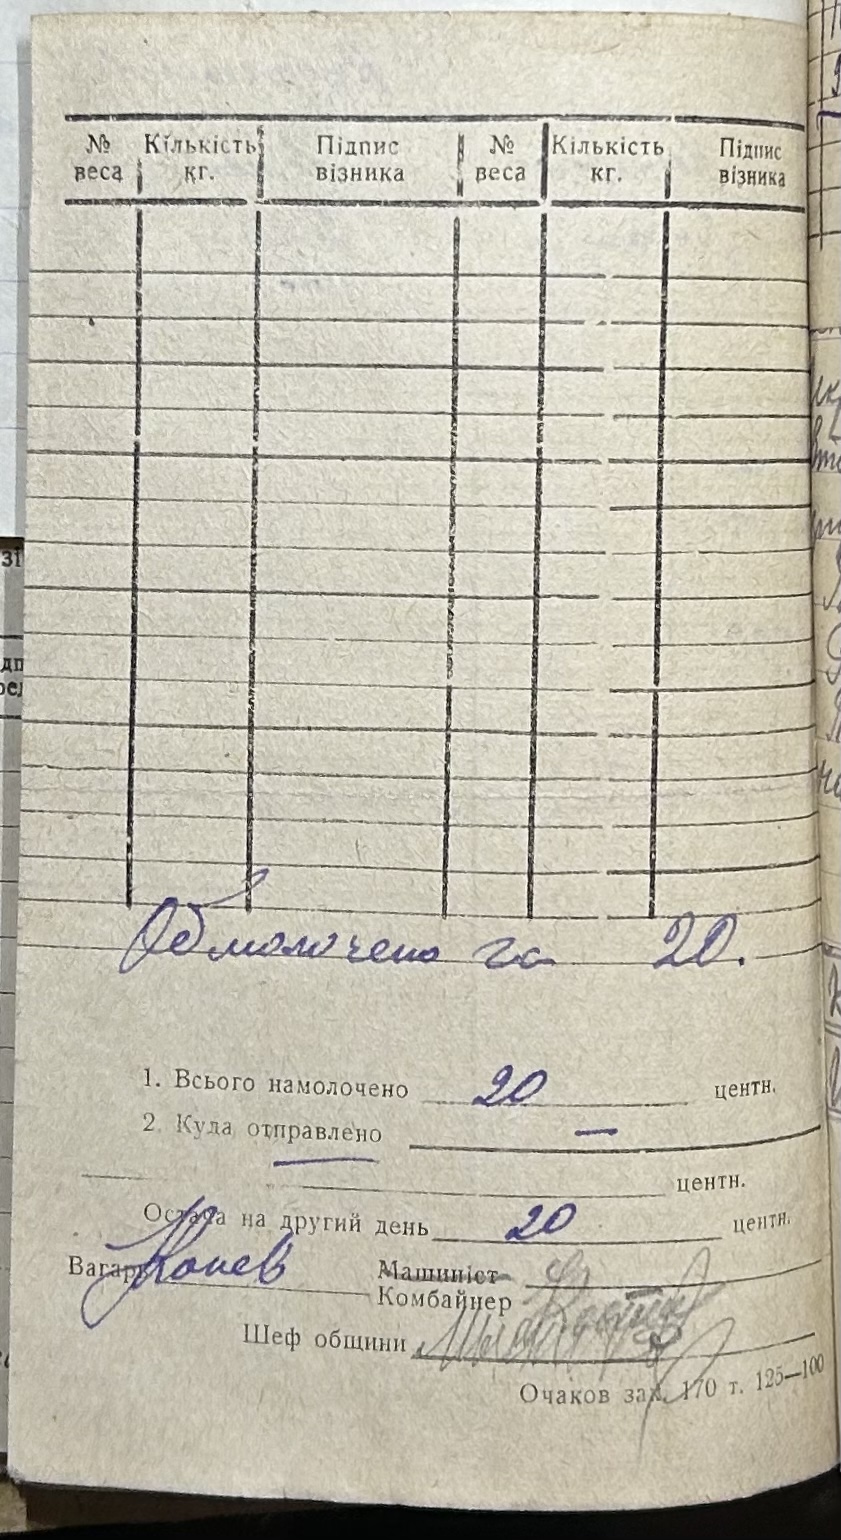 № веса Кількість кг. Підпис візника № веса Кількість кг. Підпис візника
Обмолочено га 20.
1. Всього намолочено 20 центн.
2 Куда отправлено —
центн.
Остача на другий день 20 центн.
Вагарь Конев Машиніст
Комбайнер
Шеф общини
Очаков зак. 170 т. 125—100